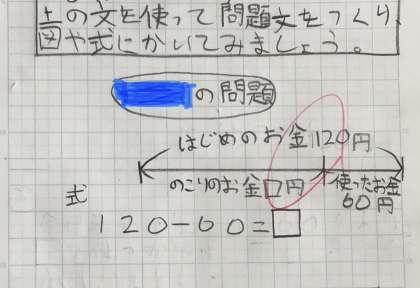 上の文を使って問題文をつくり、
図や式にかいてみましょう。
の問題
はじめのお金120円
のこりのお金□円
使ったお金
60円
式
120-60=□